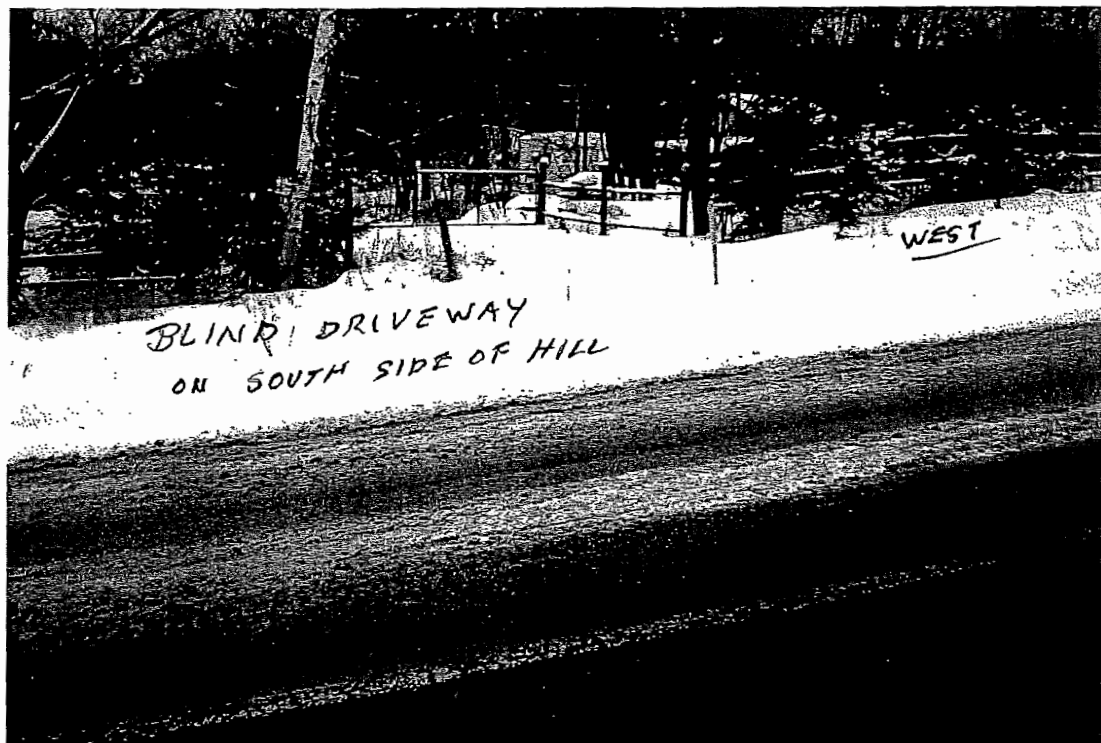 WEST
BLIND DRIVEWAY
ON SOUTH SIDE OF HILL